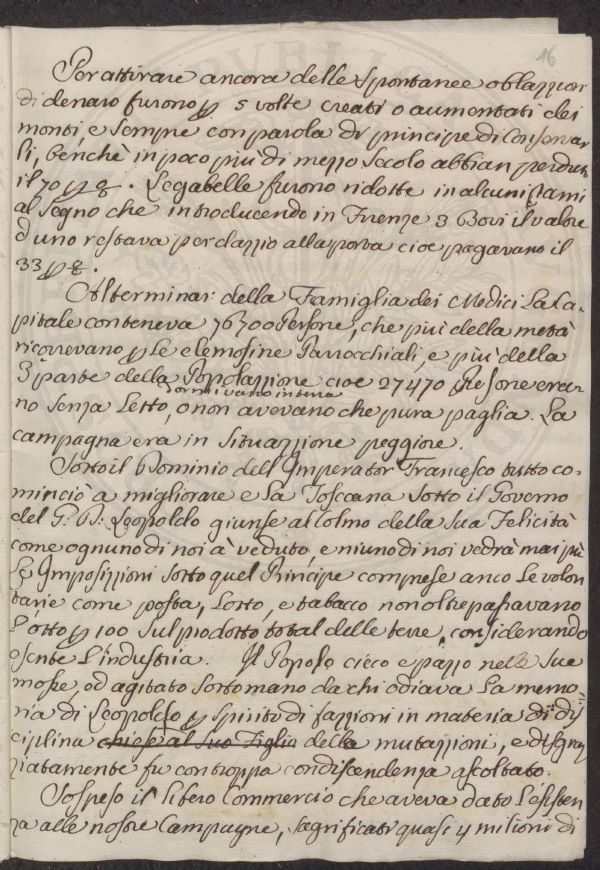 16
Per attirare ancora delle Spontanee oblazzion
di denaro furono p 5 volte creati o aumentati dei
monti, e Sempre con parola di principe di Conservar
li, benchè in poco più di mezzo Secolo abbian perdut
il 70 p %. Le gabelle furono ridotte in alcuni rami
al Segno che introducendo in Firenze 3 Bovi il valore
d'uno restava per dazzio alla porta cioè pagavano il
33 p %.
Al terminar della Famiglia dei Medici La Ca-
pitale conteneva 76700 Persone, che più della metà
ricorrevano p Le elemosine Parrocchiali, e più della
3ª parte della Popolazzione cioe 27470 Persone era-
dormivano in terra
no Senza Letto, o non avevano che pura paglia. La
campagna era in Situazzione peggiore.
Sotto il Dominio dell'Imperator Francesco tutto co-
minciò a migliorare e La Toscana Sotto il Governo
del G. D. Leopoldo giunse al Colmo della Sua Felicità
come ognuno di noi à veduto, e niuno di noi vedrà mai più
Le Imposizzioni Sotto quel Principe comprese anco Le volon
tarie come posta, Lotto, e tabacco non oltrepassavano
L'otto p 100 Sul prodotto total delle terre, considerando
esente L'industria. Il Popolo cieco e pazzo nelle Sue
mosse, ed agitato Sotto mano da chi odiava La memo-
ria di Leopoldo p Spirito di fazzioni in materia di di
ciplina chiese al Suo Figlio della mutazzioni, e disgraz
ziatamente fu con troppa condiscendenza ascoltato.
Sospeso il libero Commercio che aveva dato l'esisten
za alle nostre Campagne, Sagrificati quasi 4 milioni di